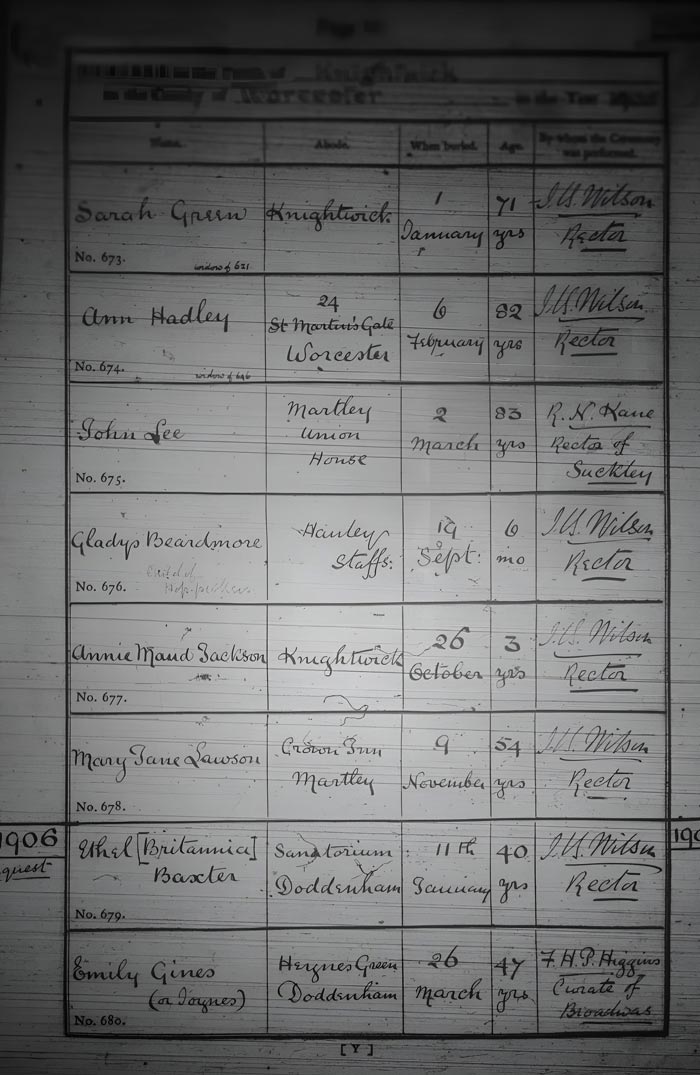 Page
in the Parish of Knightwick
in the County of Worcester in the Year
Name. Abode. When buried. Age. By whom the Ceremony was performed.
Sarah Green Knightwick 1 January 71 yrs J.H. Wilson Rector
No. 673. widow of 621
Ann Hadley 24 St Martin's Gate Worcester 6 February 82 yrs J.H. Wilson Rector
No. 674. widow of 646
John Lee Martley Union House 2 March 83 yrs R. N. Kane Rector of Suckley
No. 675.
Gladys Beardmore Hanley Staffs: 19 Sept: 6 mo J.H. Wilson Rector
No. 676. Child of Hop-pickers
Annie Maud Jackson Knightwick 26 October 3 yrs J.H. Wilson Rector
No. 677.
Mary Jane Lawson Crown Inn Martley 9 November 54 yrs J.H. Wilson Rector
No. 678.
1906
quest
Ethel [Britannia] Baxter Sanatorium Doddenham 11th January 40 yrs J.H. Wilson Rector
190
No. 679.
Emily Gines (or Joynes) Heynes Green Doddenham 26 March 47 yrs F.H.P. Higgins Curate of Broadwas
No. 680.
[Y]